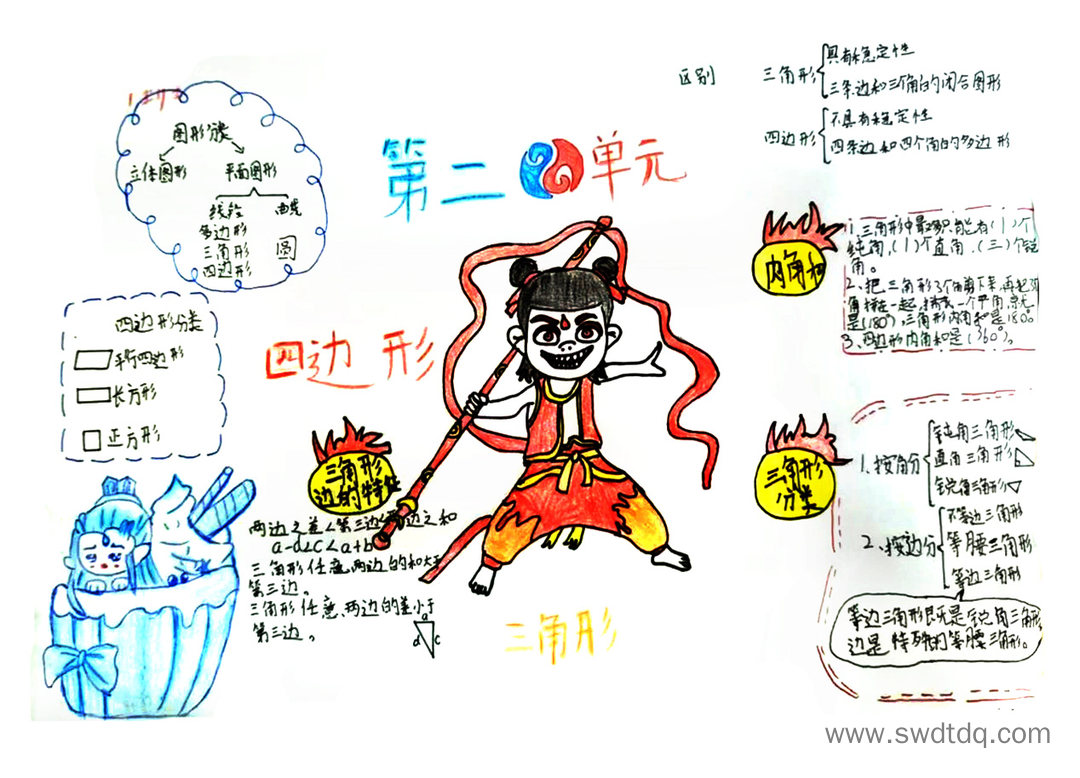 第二单元
四边形
三角形
图形分类
立体图形 平面图形
线段 曲线
多边形
三角形
四边形
圆
四边形分类
平行四边形
长方形
正方形
三角形
边的特征
两边之差<第三边<两边之和
a-d<c<a+b
三角形任意两边的和大于
第三边。
三角形任意两边的差小于
第三边。
a
d c
区别
三角形
具有稳定性
三条边和三个角的闭合图形
四边形
不具有稳定性
四条边和四个角的多边形
内角和
1.三角形中最多只能有(1)个
钝角,(1)个直角,(三)个锐
角。
2.把三角形3个角剪下来,再把3个
角拼在一起,拼成一个平角,
是(180°),三角形内角和是180°
3.四边形内角和是(360°)。
三角形
分类
1.按角分
钝角三角形
直角三角形
锐角三角形
2.按边分
不等边三角形
等腰三角形
等边三角形
等边三角形既是锐角三角形,
边是特殊的等腰三角形。
www.swdtdq.com